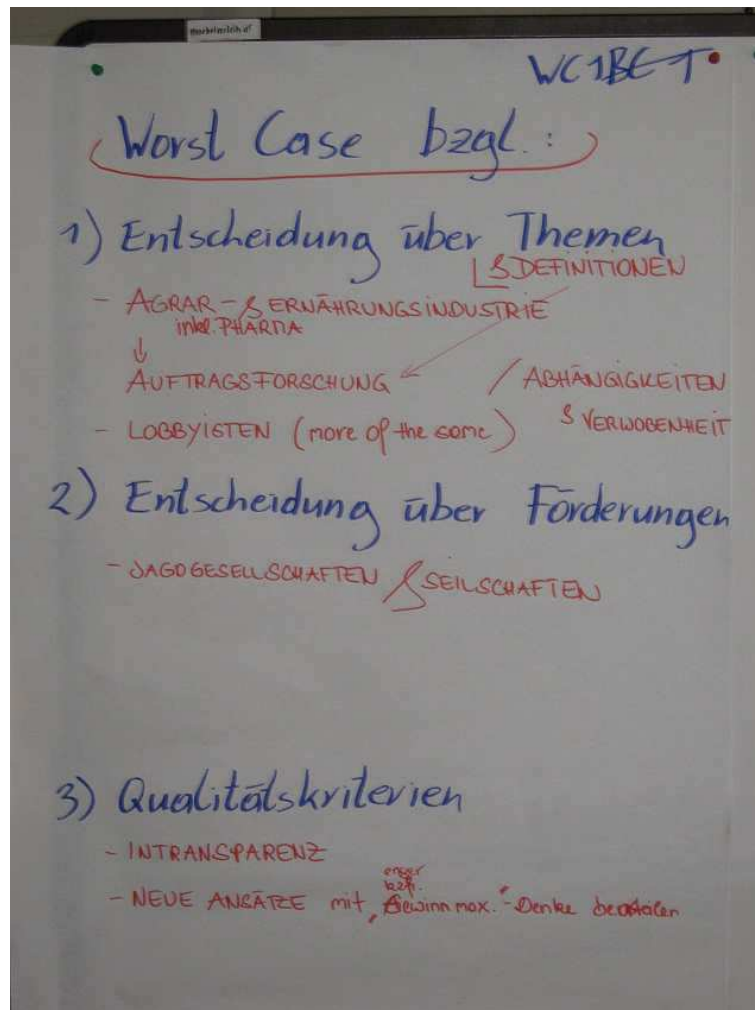 WC1BET
Worst Case bzgl.:
1) Entscheidung über Themen
& DEFINITIONEN
- AGRAR - & ERNÄHRUNGSINDUSTRIE
inkl. PHARMA
↓
AUFTRAGSFORSCHUNG / ABHÄNGIGKEITEN
- LOBBYISTEN (more of the same) & VERWOBENHEIT
2) Entscheidung über Förderungen
- JAGDGESELLSCHAFTEN & SEILSCHAFTEN
3) Qualitätskriterien
- INTRANSPARENZ
enger
kzfr.
- NEUE ANSÄTZE mit „Gewinnmax."-Denke